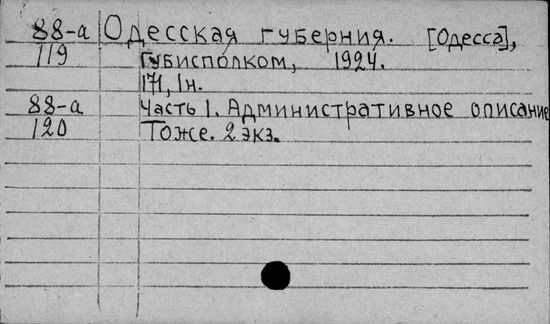 88-а Одесская губерния. [Одесса],
119 Губисполком, 1924.
171, 1н.
88-а Часть 1. Административное описание
120 Тоже. 2 экз.